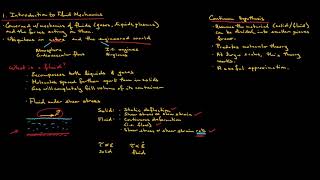 1. Introduction to Fluid Mechanics
- Concerned w/ mechanics of fluids (gases, liquids, plasmas)
and the forces acting on them.
- Ubiquitous in nature and the engineered world
Atmosphere IC engines
Cardiovascular flow JT engines
What is a fluid?
- Encompasses both liquids & gases
- Molecules spread further apart than in solids
- Gas will completely fill volume of its container
- Fluid under shear stress
Solid: - Static deflection
- Shear stress α shear strain
Fluid: - Continuous deformation
(i.e. flow)
- Shear stress α shear strain rate
τ α ε τ α ε̇
Solid fluid
Continuum Hypothesis
- Assume the material (solid/fluid)
can be divided into smaller pieces
forever.
- Predates molecular theory.
- At large scales, this theory
works.
- A useful approximation.